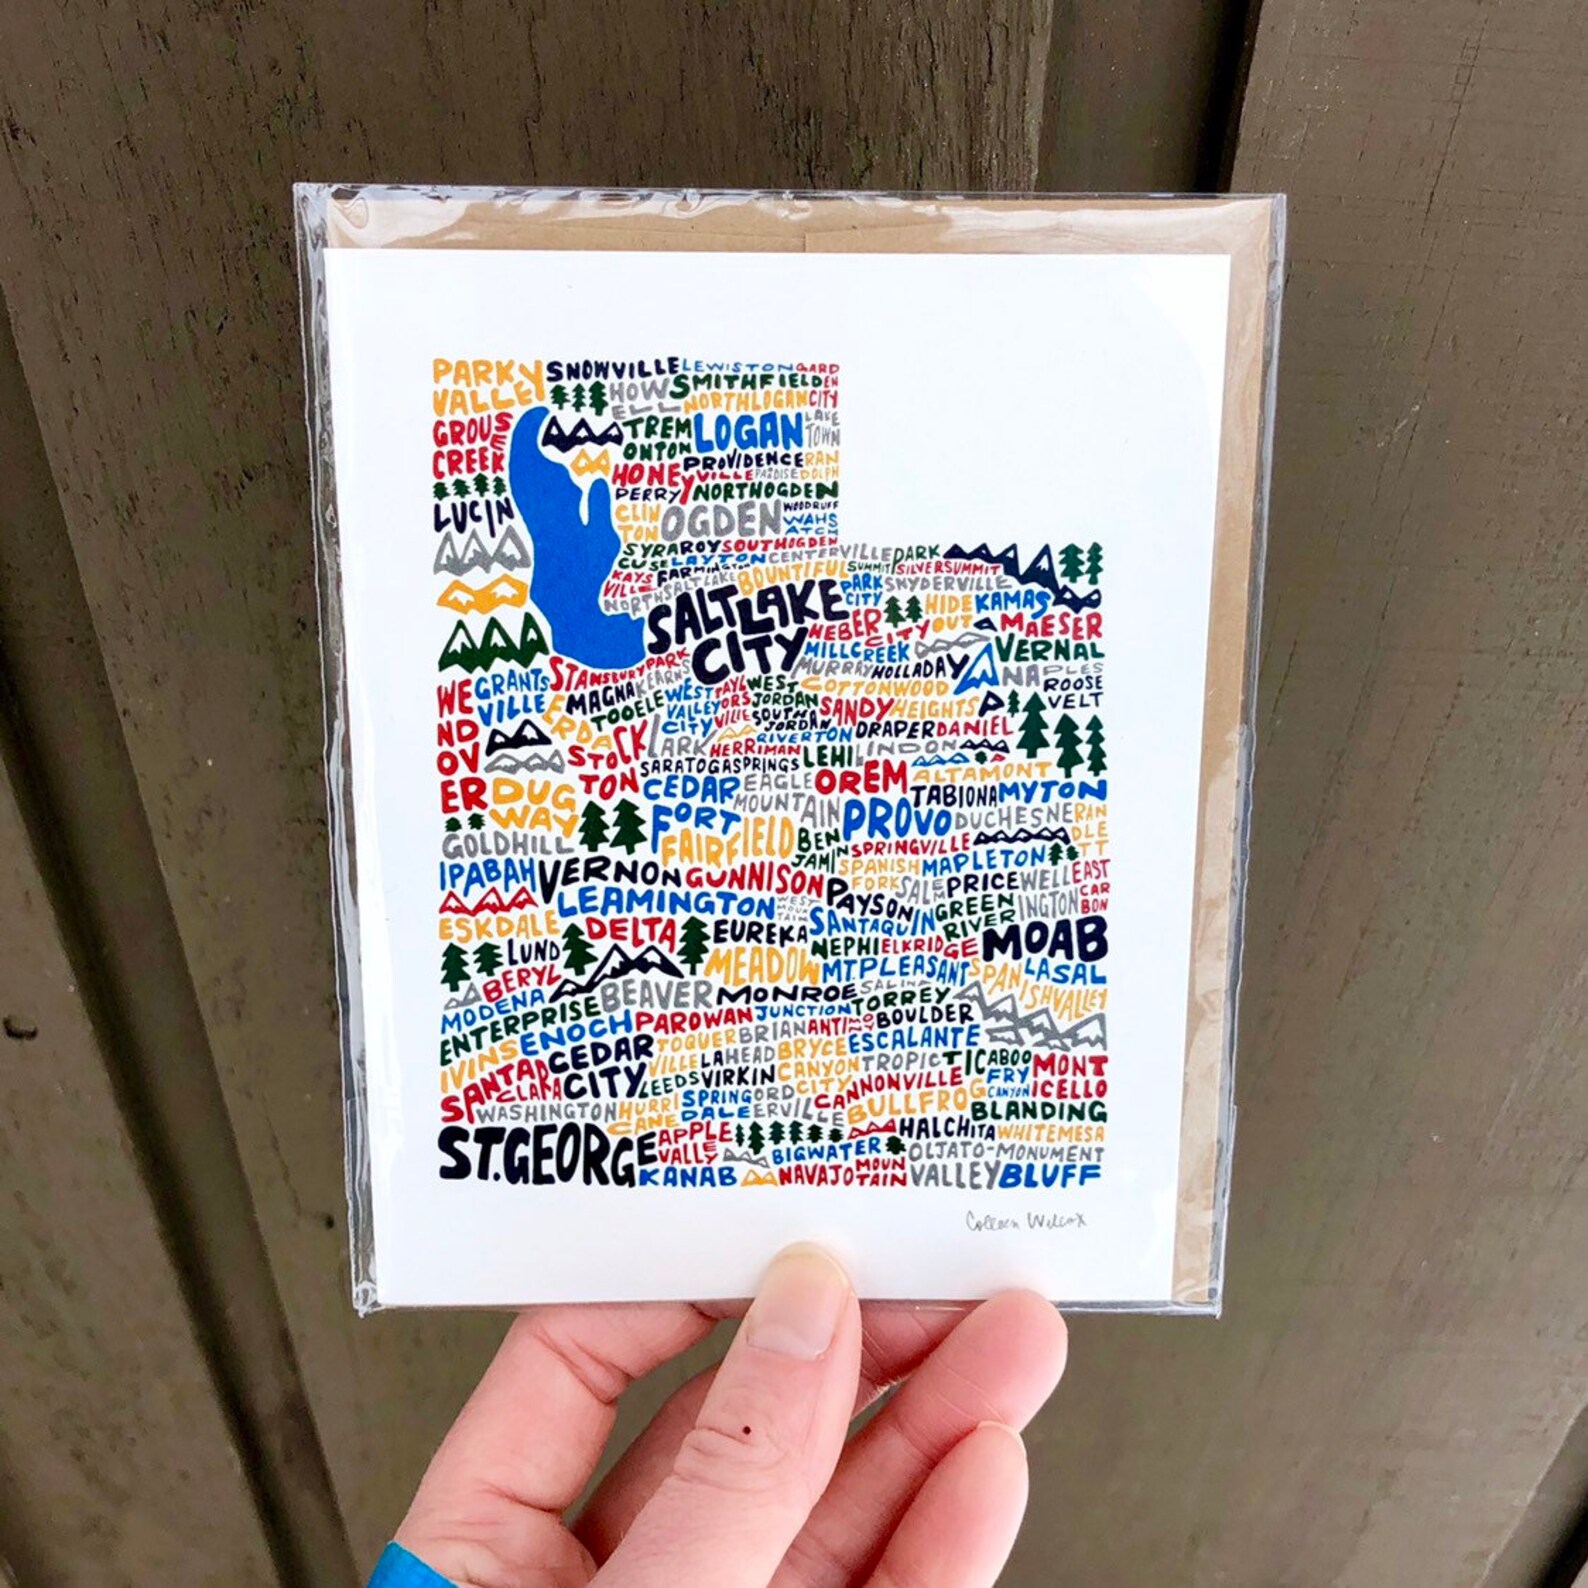 PARK VALLEY SNOWVILLE LEWISTON GARDEN CITY
HOWELL SMITHFIELD
NORTH LOGAN
GROUSE CREEK
TREMONTON LOGAN LAKETOWN
PROVIDENCE RANDOLPH
HONEYVILLE PARADISE
PERRY NORTH OGDEN
LUCIN
CLINTON OGDEN WOODRUFF
WAHSATCH
SYRACUSE ROY SOUTH OGDEN
LAYTON CENTERVILLE PARK
KAYSVILLE FARMINGTON BOUNTIFUL SUMMIT SILVER SUMMIT
NORTH SALT LAKE PARK CITY SNYDERVILLE
SALT LAKE CITY HIDEOUT KAMAS
HEBER CITY MAESER
MILLCREEK VERNAL
STANSBURY PARK MURRAY HOLLADAY NAPLES
WENDOVER GRANTSVILLE KEARNS COTTONWOOD HEIGHTS ROOSEVELT
ERDA MAGNA WEST VALLEY CITY TAYLORSVILLE WEST JORDAN
TOOELE SOUTH JORDAN SANDY
STOCKTON LARK RIVERTON DRAPER DANIEL
HERRIMAN LEHI LINDON
SARATOGA SPRINGS
DUGWAY CEDAR FORT EAGLE MOUNTAIN OREM ALTAMONT
TABIONA MYTON
GOLD HILL FAIRFIELD BENJAMIN PROVO DUCHESNE RANDLETT
SPRINGVILLE
IBAPAH VERNON GUNNISON SPANISH FORK MAPLETON
PAYSON SALEM PRICE WELLINGTON EAST CARBON
LEAMINGTON WEST MOUNTAIN SANTAQUIN GREEN RIVER
ESKDALE DELTA EUREKA NEPHI ELKRIDGE MOAB
LUND
BERYL MEADOW MT. PLEASANT SPANISH VALLEY LASAL
MODENA BEAVER MONROE SALINA TORREY
ENTERPRISE JUNCTION BOULDER
ENOCH PAROWAN BRIANHEAD ANTIMONY ESCALANTE
IVINS CEDAR CITY TOQUERVILLE LA BRYCE CANYON CITY TROPIC TICABOO MONTICELLO
SANTA CLARA LEEDS VIRKIN CANNONVILLE FRY CANYON
WASHINGTON HURRICANE SPRINGDALE ORDERVILLE BULLFROG BLANDING
ST. GEORGE APPLE VALLEY HALCHITA WHITE MESA
BIG WATER OLJATO-MONUMENT VALLEY
KANAB NAVAJO MOUNTAIN BLUFF
Colleen Wilcox